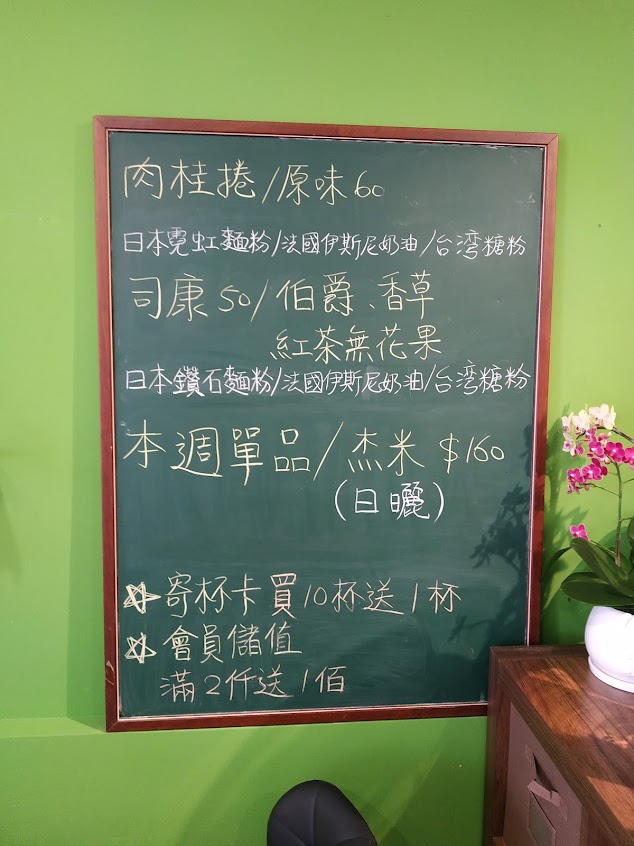 肉桂捲/原味60
日本霓虹麵粉/法國伊斯尼奶油/台湾糖粉
司康50/伯爵、香草
紅茶無花果
日本鑽石麵粉/法國伊斯尼奶油/台湾糖粉
本週單品/杰米 $160
(日曬)
☆寄杯卡買10杯送1杯
☆會員儲值
滿2仟送1佰